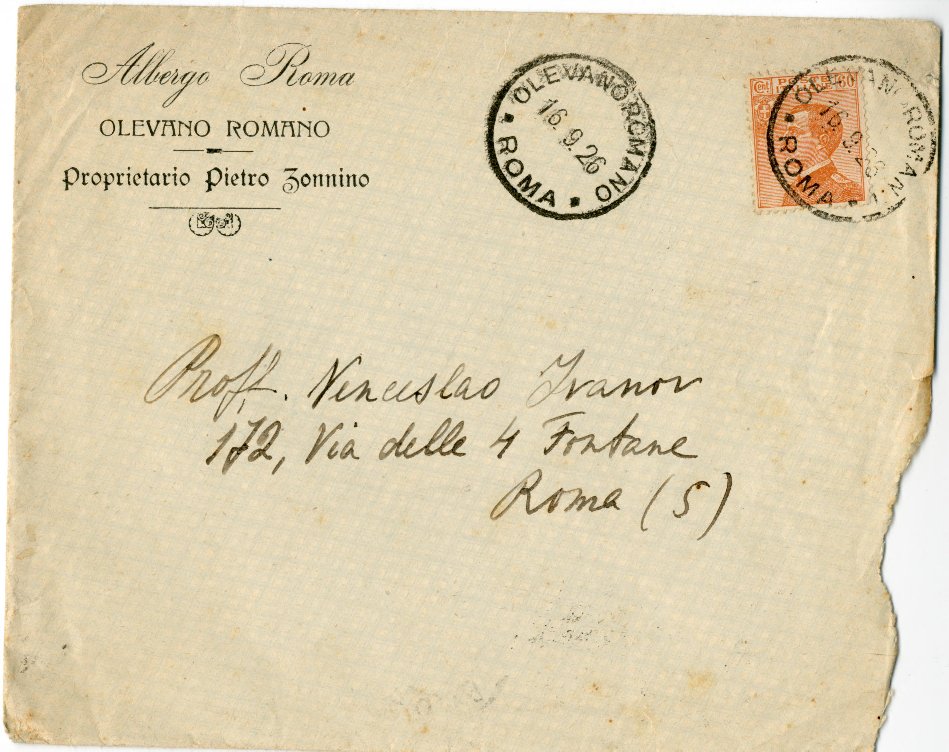 Albergo Roma
OLEVANO ROMANO
Proprietario Pietro Zonnino
OLEVANO ROMANO
16.9.26
* ROMA *
60
OLEVANO ROMAN
16.9.26
* ROMA *
Proff. Venceslao Ivanov
172, Via delle 4 Fontane
Roma (5)